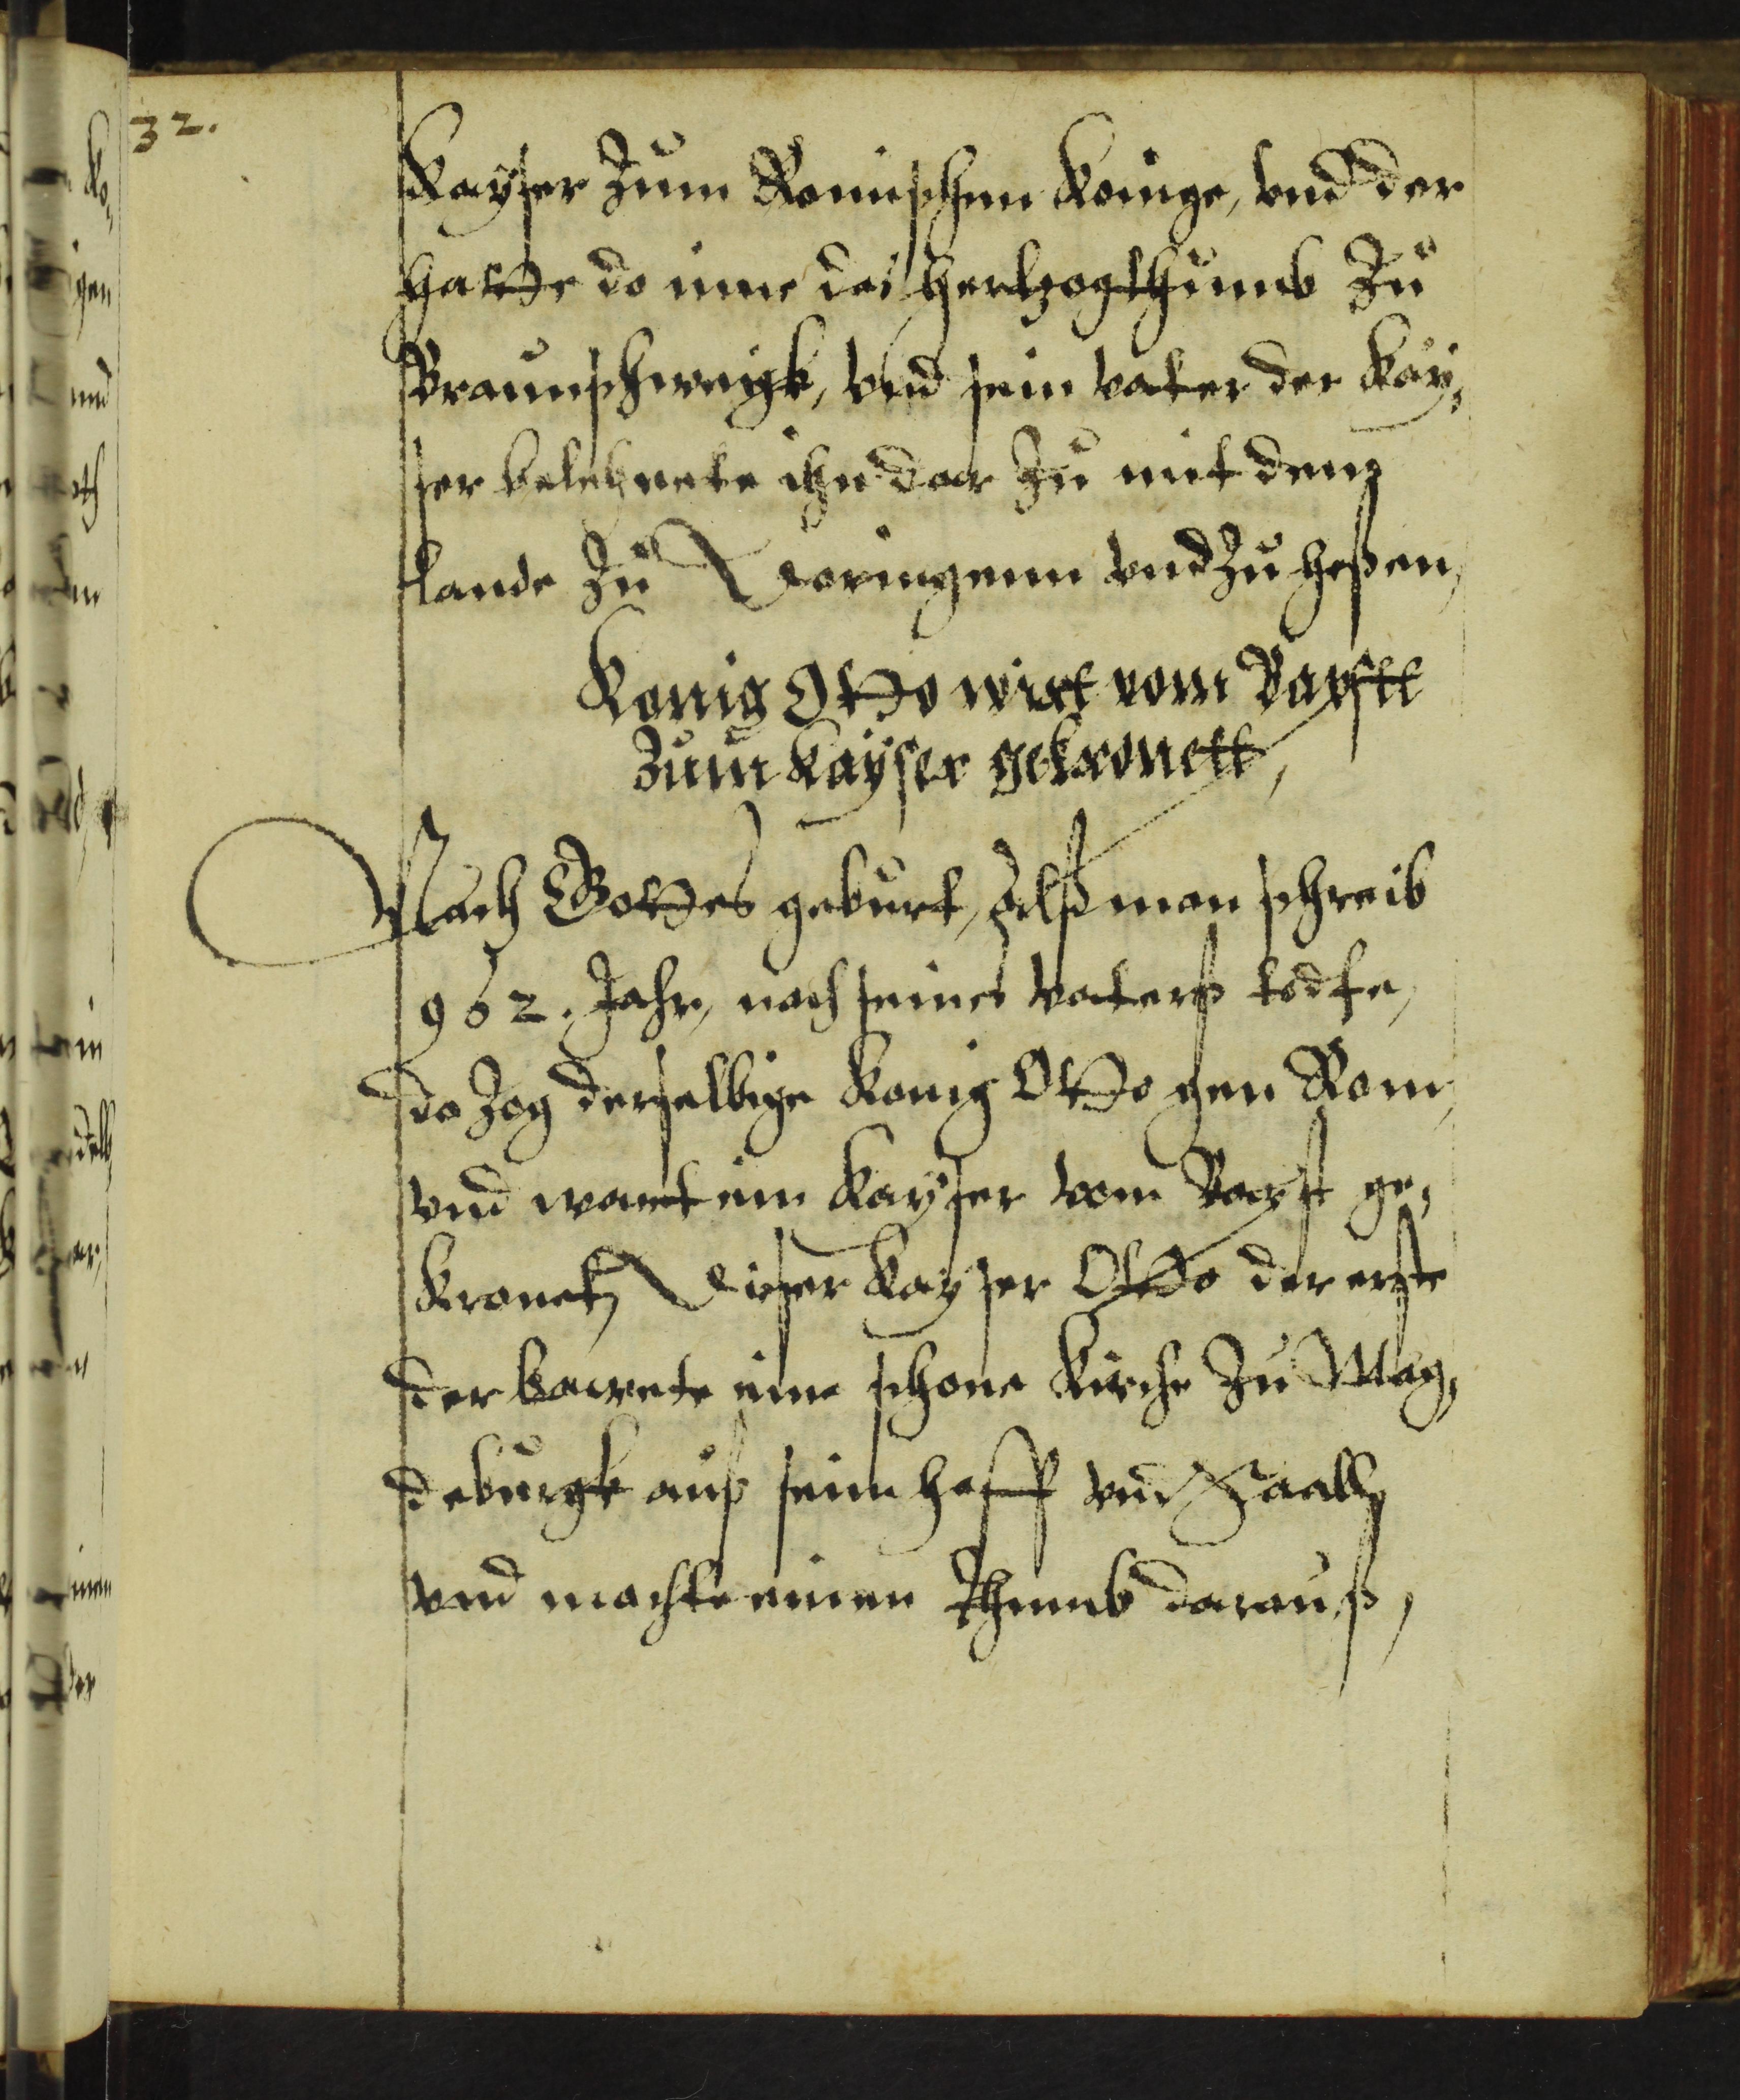 32.
Kayser zum Romischenn Koinge, vnd der
hatte do inne das hertzogthumb zu
Braunschweigk, vnd sein vater der Kay,
ser belehnete ihn dar zu mit dem
lande zu Doringenn vnd zu heßen,
Konig Otto wirt vom Bapstt
zum Kayser gekronett,
Nach Gottes geburt, alß man schreib
962. Jahr, nach seines vaterß todte,
do zog derselbige Konig Otto gen Rom,
vnd wart ein Kayser vom Bapst ge,
kronett, Dieser Kayser Otto der erste
der bawete eine schone Kirche zu Mag,
deburgk auß seim hoff vnd Saall,
vnd machte einen Thumb darauß,